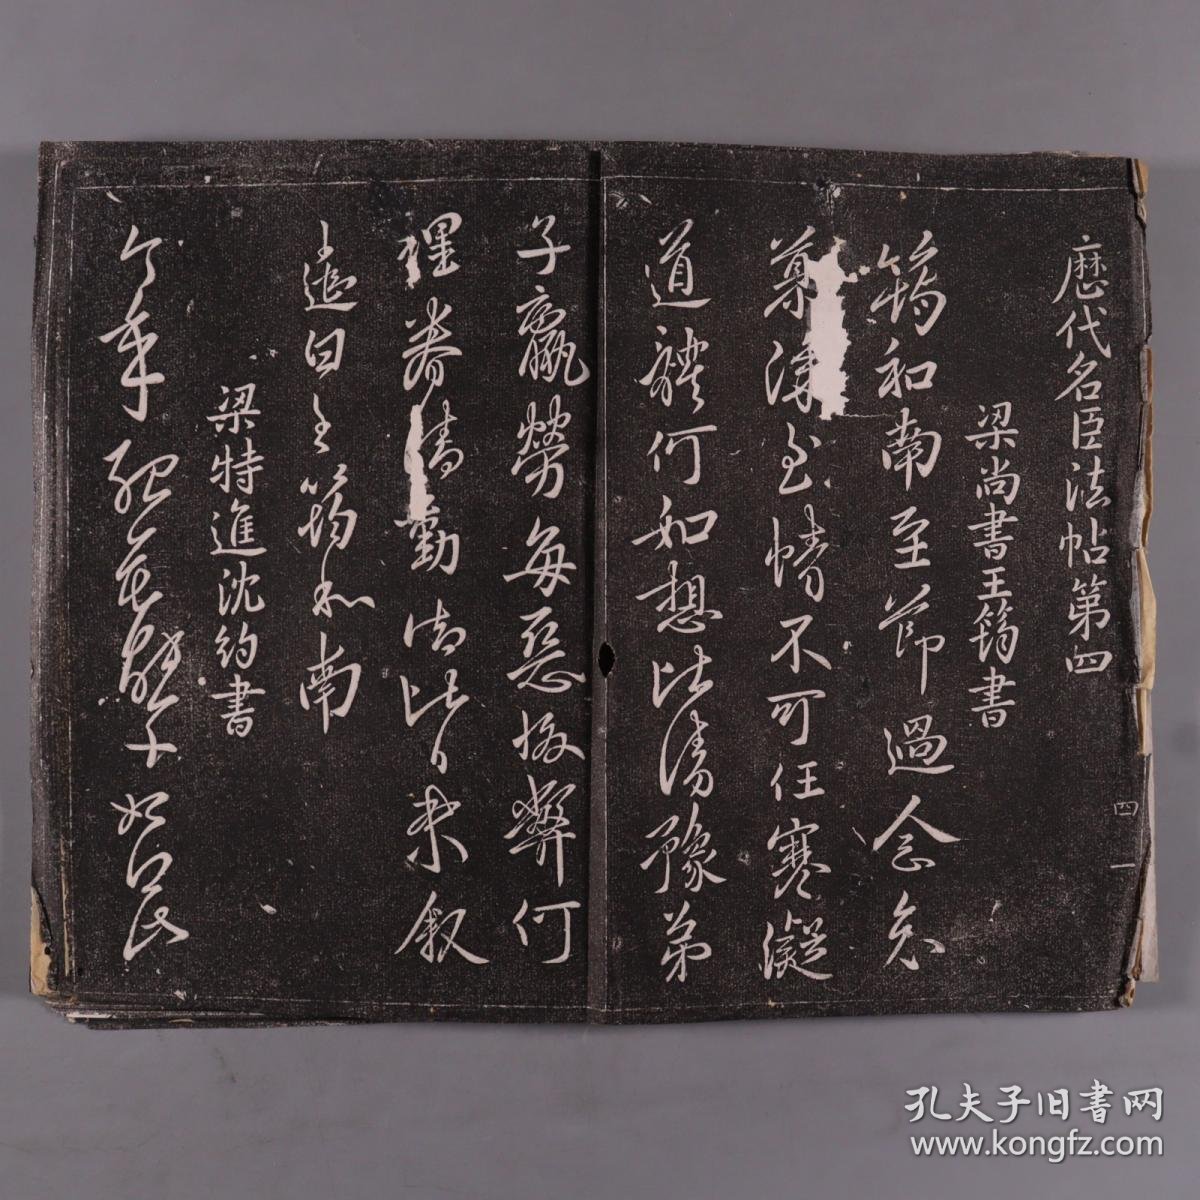 歷代名臣法帖第四
梁尚書王筠書
筠和南至節過念
深至情不可任寒凝
道體何如想比清豫弟
子羸勞每惡
何
理眷 勤 比 未敘
遣白王筠和南
梁特進沈約書
今年
四 一
孔夫子旧书网
www.kongfz.com